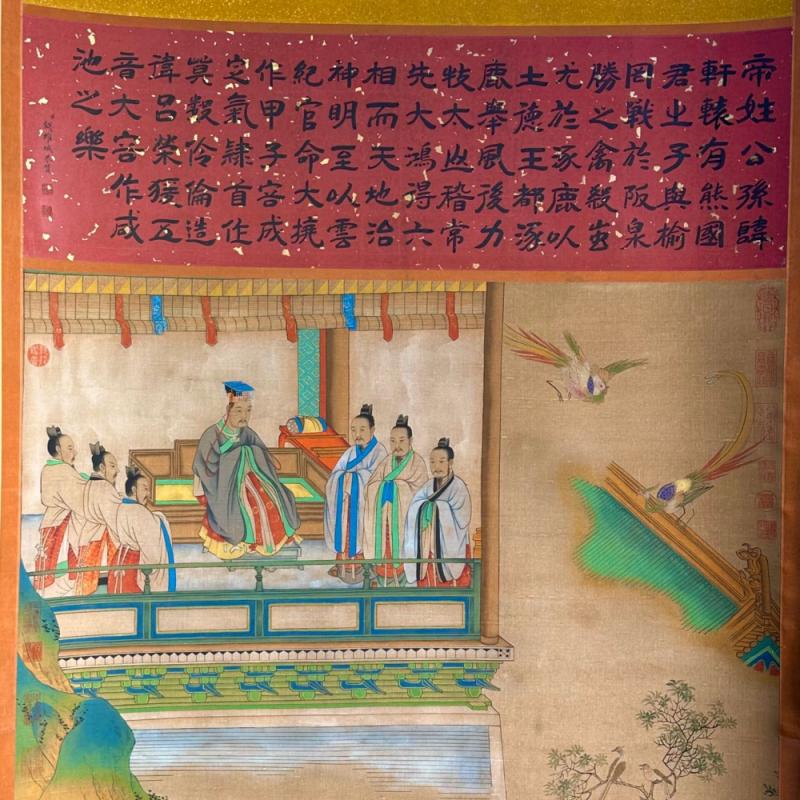 帝姓公孫諱
軒轅有熊國
君之子與榆
罔戰於阪泉
勝之禽殺蚩
尤於涿鹿以
土德王都涿
鹿舉風後力
牧太山稽常
先大鴻得六
相而天地治
神明至以雲
紀官命大撓
作甲子容成
定氣隸首作
算數伶倫造
律呂榮猨五
音大容作咸
池之樂